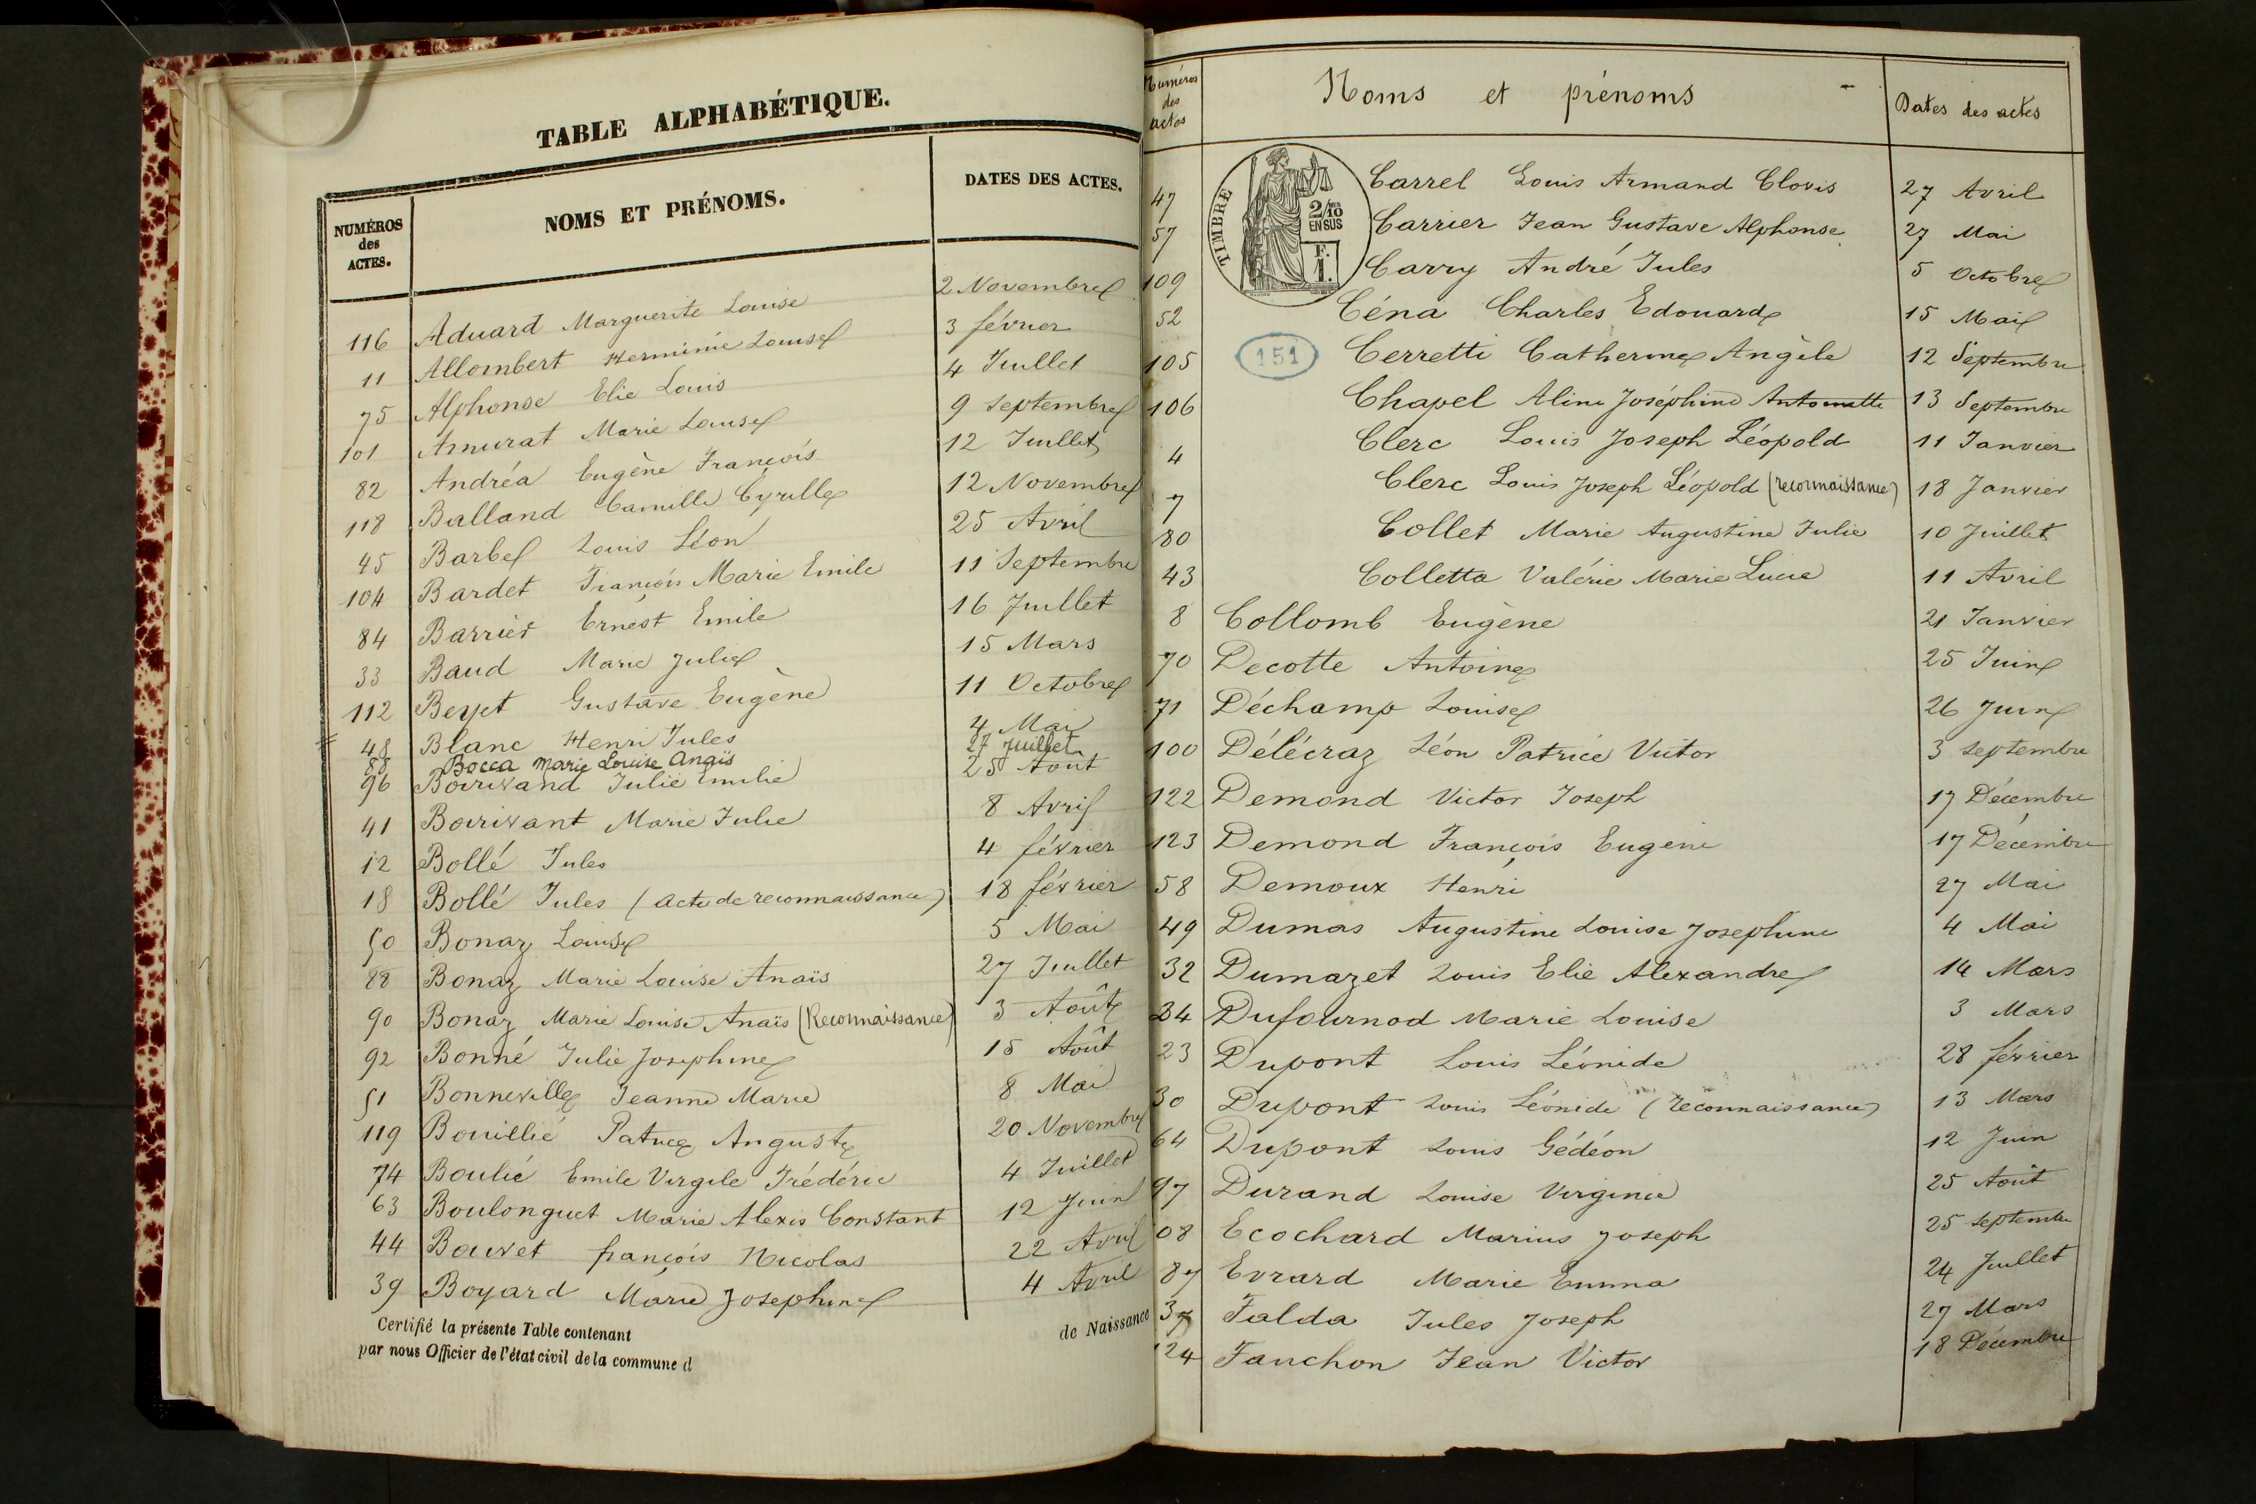 TABLE ALPHABÉTIQUE.
NUMÉROS des ACTES. NOMS ET PRÉNOMS. DATES DES ACTES.
116 Aduard Marguerite Louise 2 Novembre
11 Allombert Herminie Louise 3 février
75 Alphonse Elie Louis 4 Juillet
101 Amurat Marie Louise 9 septembre
82 Andréa Eugène François 12 Juillet
118 Balland Camille Cyrille 12 Novembre
45 Barbe Louis Léon 25 Avril
104 Bardet François Marie Emile 11 Septembre
84 Barrier Ernest Emile 16 Juillet
33 Baud Marie Julie 15 Mars
112 Beyet Gustave Eugène 11 Octobre
48 Blanc Henri Jules 4 Mai
88 Bocca Marie Louise Anaïs 27 Juillet
96 Boirivand Julie Emilie 25 Août
41 Boirivant Marie Julie 8 Avril
12 Bollé Jules 4 février
18 Bollé Jules (acte de reconnaissance) 18 février
50 Bonaz Louise 5 Mai
88 Bonaz Marie Louise Anaïs 27 Juillet
90 Bonaz Marie Louise Anaïs (Reconnaissance) 3 Août
92 Bonné Julie Josephine 15 Août
51 Bonneville Jeanne Marie 8 Mai
119 Bouillié Patrice Auguste 20 Novembre
74 Boulié Emile Virgile Frédéric 4 Juillet
63 Boulonguet Marie Alexis Constant 12 Juin
44 Bouvet françois Nicolas 22 Avril
39 Boyard Marie Josephine 4 Avril
Certifié la présente Table contenant de Naissance
par nous Officier de l'état civil de la commune d
Numéros des actes Noms et prénoms Dates des actes
TIMBRE
2/10 EN SUS
F. 1.
151
47 Carrel Louis Armand Clovis 27 Avril
57 Carrier Jean Gustave Alphonse 27 Mai
109 Carry André Jules 5 Octobre
52 Céna Charles Edouard 15 Mai
105 Cerretti Catherine Angèle 12 Septembre
106 Chapel Aline Joséphine Antoinette 13 Septembre
4 Clerc Louis Joseph Léopold 11 Janvier
7 Clerc Louis Joseph Léopold (reconnaissance) 18 Janvier
80 Collet Marie Augustine Julie 10 Juillet
43 Colletta Valérie Marie Lucie 11 Avril
8 Collomb Eugène 21 Janvier
70 Decotte Antoine 25 Juin
71 Déchamp Louise 26 Juin
100 Délécraz Léon Patrice Victor 3 septembre
122 Demond Victor Joseph 17 Décembre
123 Demond François Eugène 17 Décembre
58 Demoux Henri 27 Mai
49 Dumas Augustine Louise Josephine 4 Mai
32 Dumazet Louis Elie Alexandre 14 Mars
24 Dufournod Marie Louise 3 Mars
23 Dupont Louis Léonide 28 février
30 Dupont Louis Léonide (reconnaissance) 13 Mars
64 Dupont Louis Gédéon 12 Juin
97 Durand Louise Virginie 25 Août
08 Ecochard Marius Joseph 25 septembre
87 Evrard Marie Emma 24 Juillet
37 Falda Jules Joseph 27 Mars
124 Fanchon Jean Victor 18 Décembre